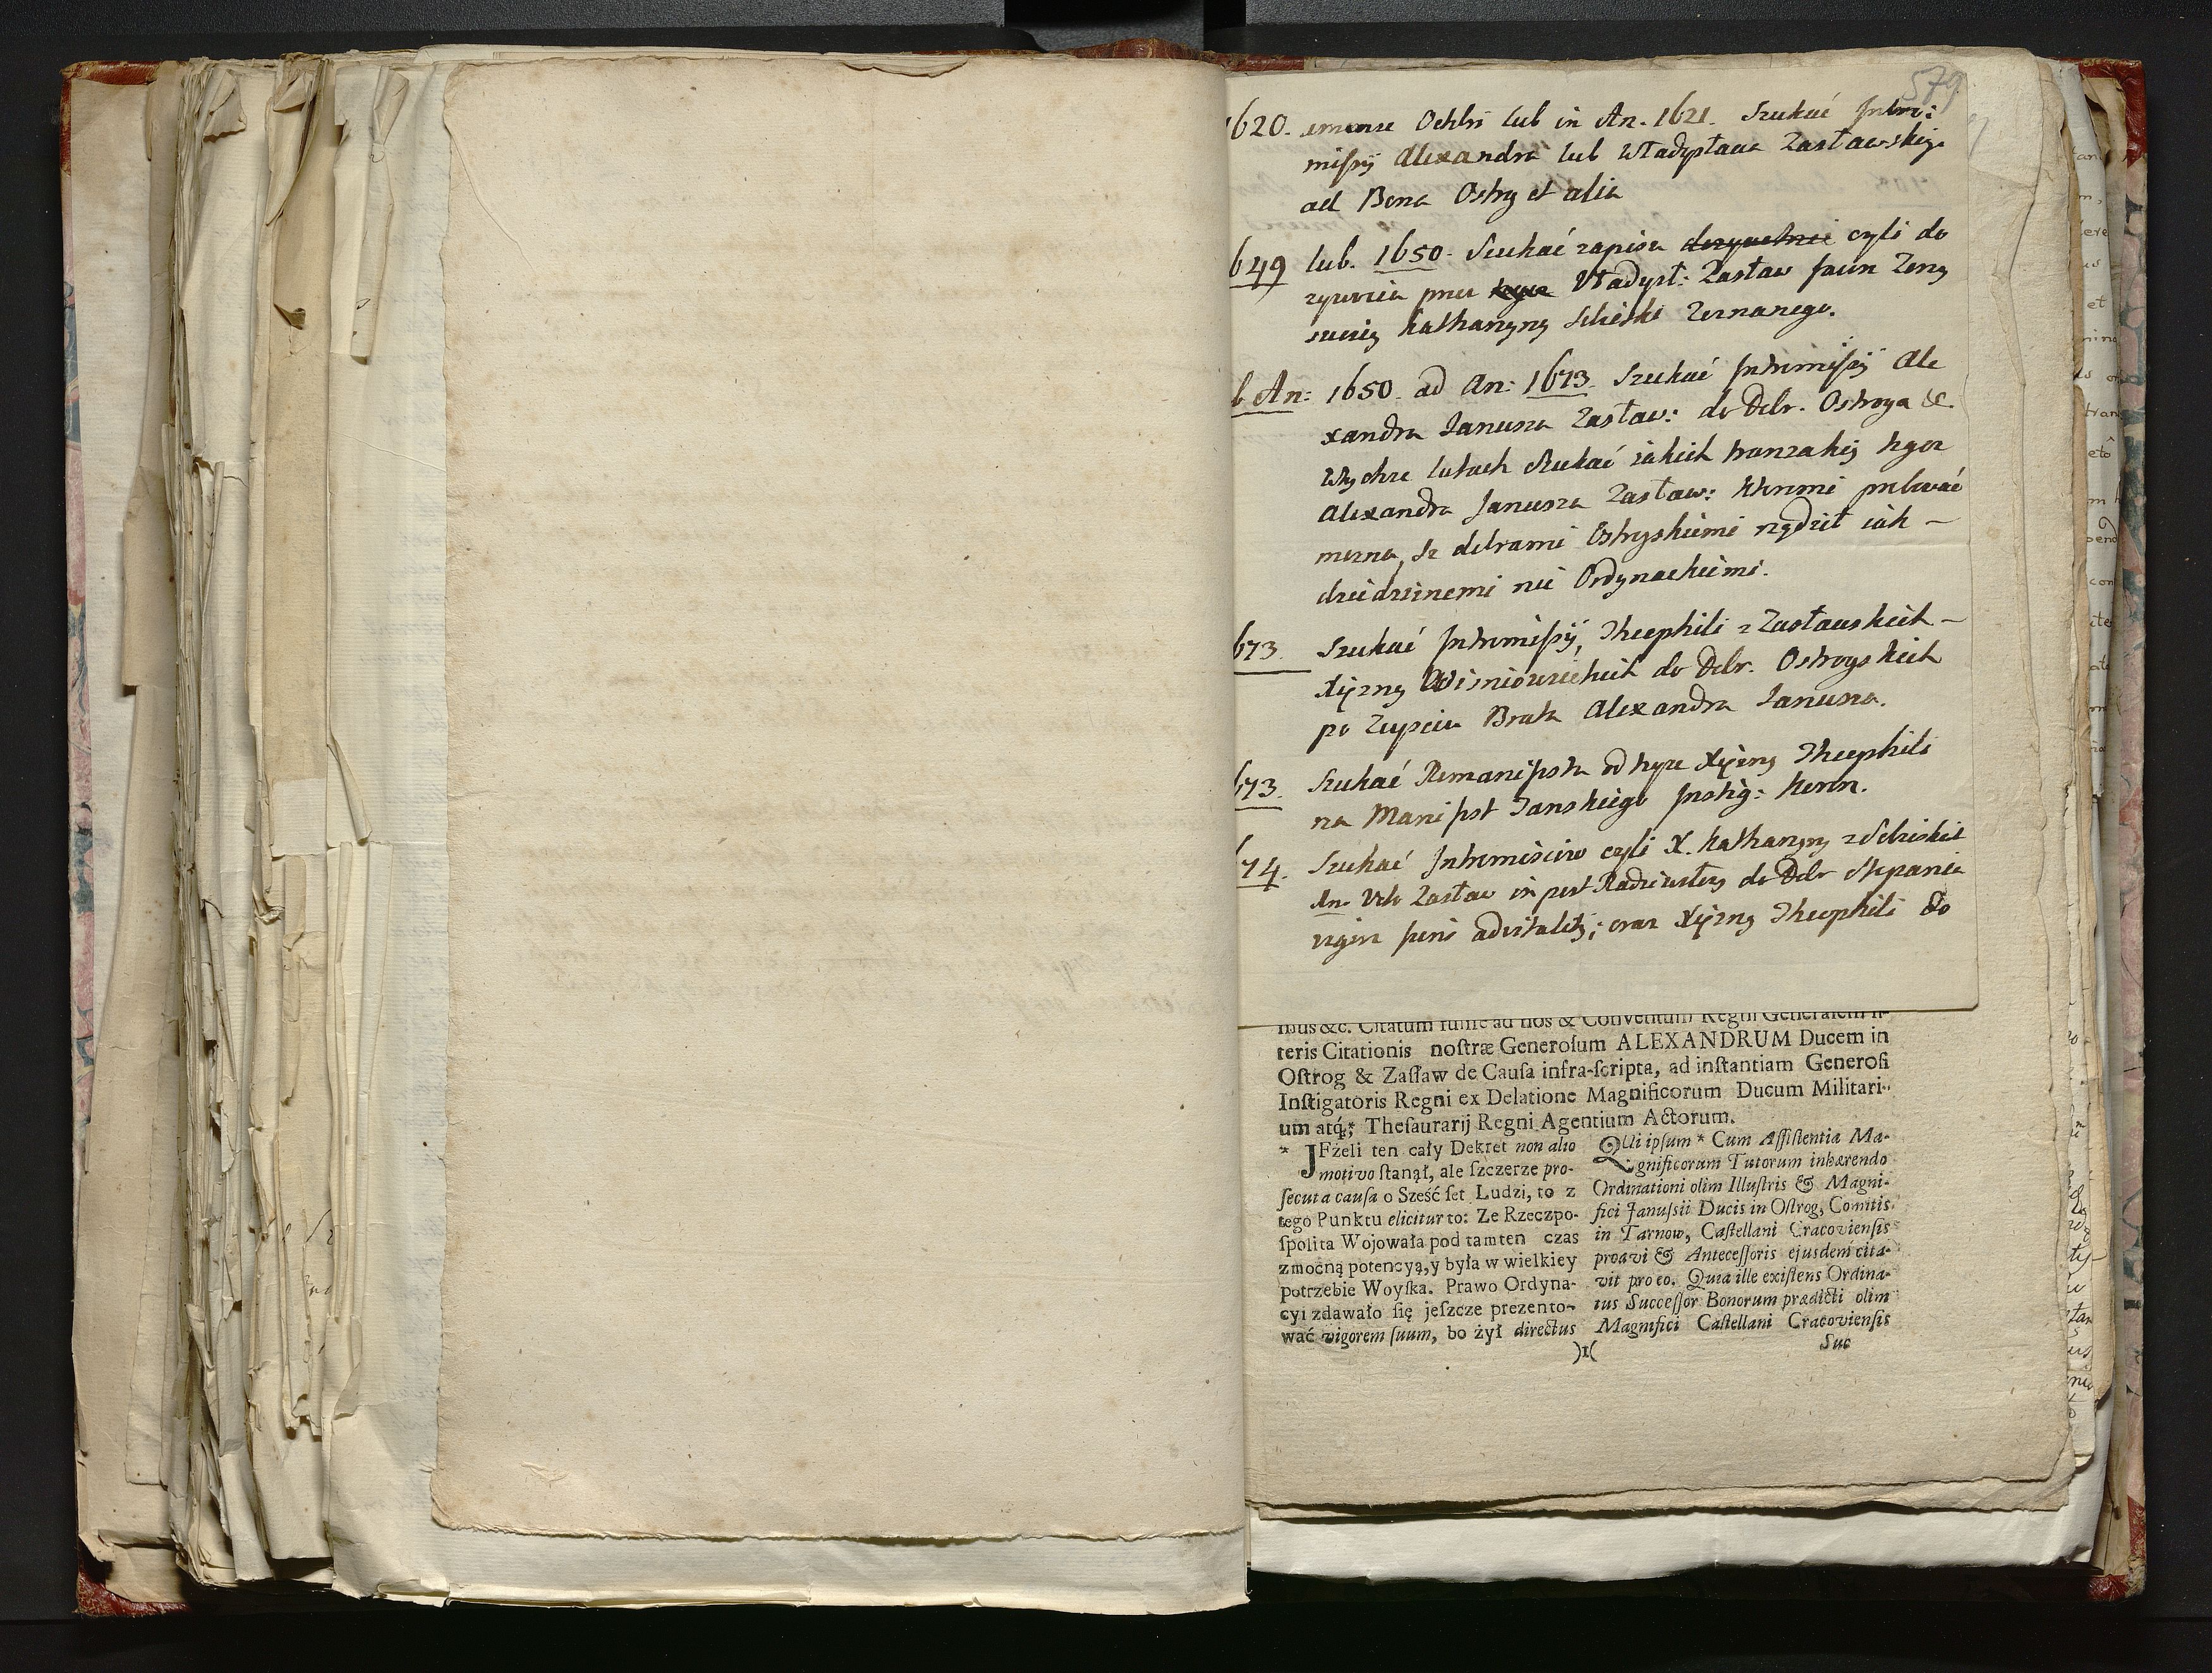 579
1620. imense Octbri lub in An. 1621. Szukać Intro:
missyi Alexandra lub Władysława Zasławskiego
ad Bona Ostrog et alia
649 lub. 1650. Szukać zapisu cyli do
zywocia przez Władysł: Zasław suum Zeny
swoiey Katharzyny Sobieski Zeznanego.
b An: 1650. ad An: 1673. Szukać Intromissyi Ale
xandra Janusza Zasław: do Dobr. Ostroga &.
Wtychze latach szukać iakich tranzakcyi tegoz
Alexandra Janusza Zasław: ktoremi probować
mozna, ze dobrami Ostrogskiemi rządził iak –
dziedzicznemi nie Ordynackiemi.
673. Szukać Intromissyi, Theophili z Zasławskich –
Xiężny Wisniowieckich do Dobr. Ostrogskich
po Zeysciu Brata Alexandra Janusza.
673. Szukać Remanifestu od teyze Xiężny Theophili
na Manifest Janskiego Instig: Koron.
74. Szukać Intromissiow cyli X. Katharzyny z Sobieskich
An. Vto Zasław in post Radziwiłły do Dobr Stepania
vigore juris advitalit; oraz Xiężny Theophili do
ibus &c. Citatum fuisse ad nos & Conventum Regni Generalem li-
teris Citationis noſtræ Generoſum ALEXANDRUM Ducem in
Oſtrog & Zaſław de Cauſa infra-ſcripta, ad inſtantiam Generoſi
Inſtigatoris Regni ex Delatione Magnificorum Ducum Militari-
um atq́; Theſaurarij Regni Agentium Actorum.
* JEżeli ten cały Dekret non alio
motivo ſtanął, ale ſzczerze pro-
ſecuta cauſa o Sześć ſet Ludzi, to z
tego Punktu elicitur to: Ze Rzeczpo-
ſpolita Wojowała pod tamten czas
z mocną potencyą, y była w wielkiey
potrzebie Woyſka. Prawo Ordyna-
cyi zdawało się jeſzcze prezento-
wać vigorem ſuum, bo żył directus
QUi ipſum * Cum Aſſiſtentia Ma-
gnificorum Tutorum inhærendo
Ordinationi olim Illuſtris & Magni-
fici Januſsii Ducis in Oſtrog, Comitis
in Tarnow, Caſtellani Cracovienſis
proavi & Anteceſſoris ejusdem cita-
vit pro eo. Quia ille exiſtens Ordina-
tus Succeſſor Bonorum prædicti olim
Magnifici Caſtellani Cracovienſis
)1( Suc